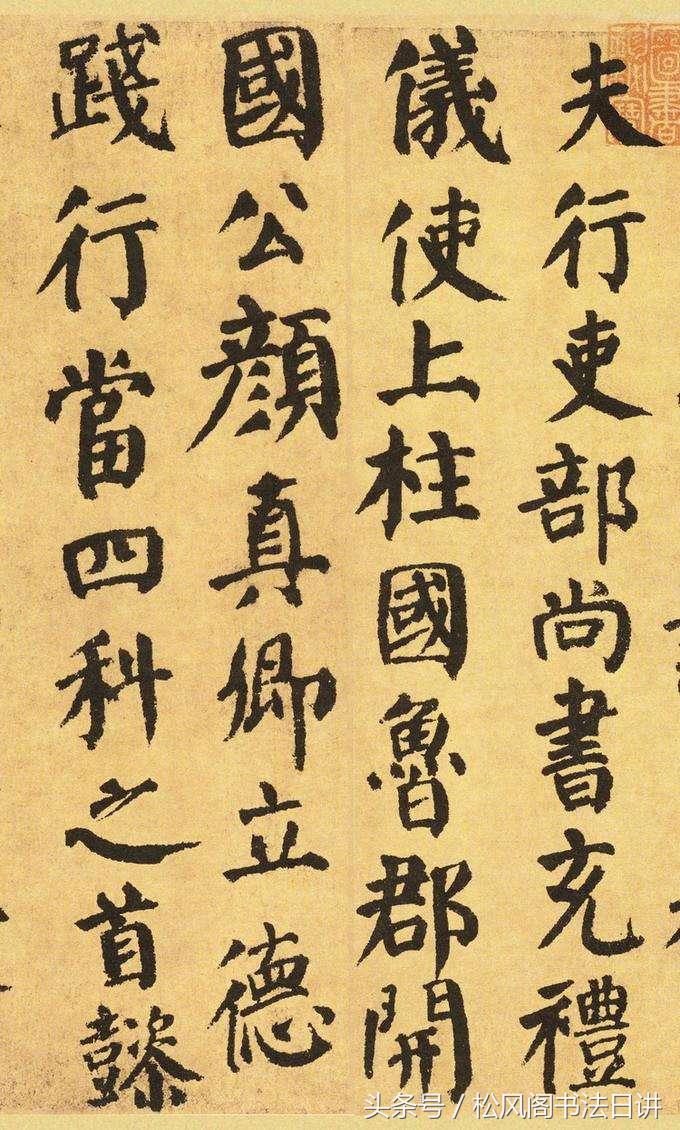 夫行吏部尚書充禮
儀使上柱國魯郡開
國公顏真卿立德
踐行當四科之首懿
头条号／松风阁书法日讲